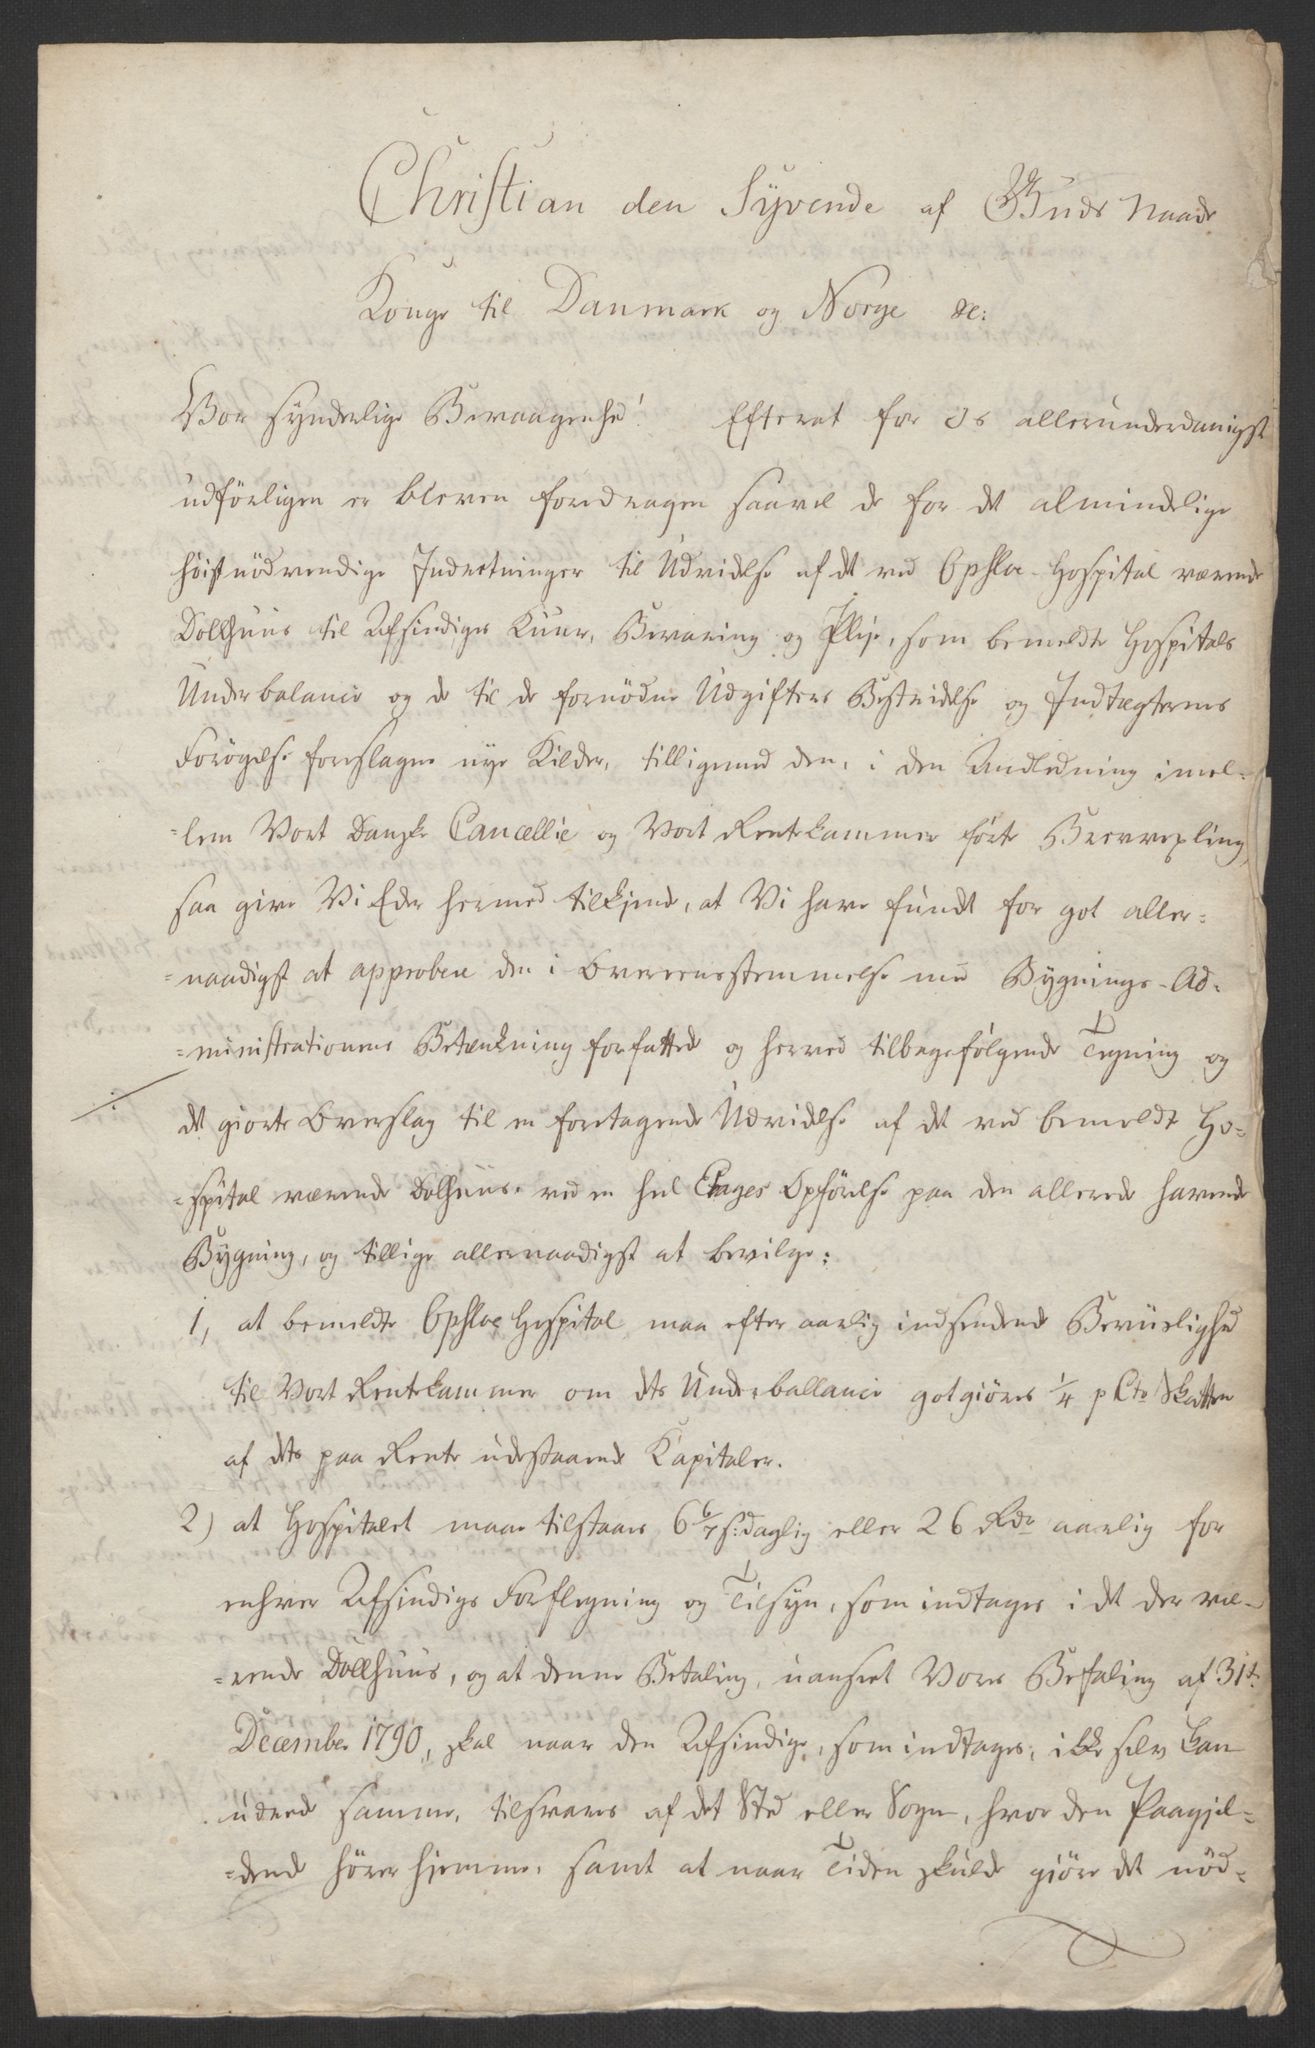 Christian den Syvende af Guds Naade
Konge til Danmark og Norge &c:
Vor synderlige Bevaagenhed! Efterat for Os allerunderdanigst
udførligen er bleven foredragen saavel de for det almindelige
høistnødvendige Indretninger til Udvidelse af det ved Opsloe Hospital værende
Dollhuus til Afsindiges Kuur, Bevaring og Pleje, som bemeldte Hospitals
Underbalance og de til de fornødne Udgifters Bestridelse og Indtægternes
Forøgelse foreslagne nye Kilder, tilligemed den, i den Anledning imel-
-lem Vort Danske Cancellie og Vort Rentekammer førte Brevvexling,
saa give Vi Eder hermed tilkjende, at Vi have fundet for got aller-
-naadigst at approbere den i Overeensstemmelse med Bygnings-Ad-
-ministrationens Betænkning forfattede og herved tilbagefølgende Tegning og
det giorte Overslag til en foretagende Udvidelse af det ved bemeldte Ho-
-spital værende Dolhuus, ved en heel Etages Opførelse paa den allerede havende
Bygning, og tillige allernaadigst at bevilge:
1, at bemeldte Opsloe Hospital maa efter aarlig indsendende Beviislighed
til Vort Rentekammer om dets Underballance gotgiøres 1/4 p Cto Skatten
af dets paa Rente udestaaende Kapitaler.
2) at Hospitalet maae tilstaaes 6 6/7 s: daglig eller 26 Rdr aarlig for
enhver Afsindigs Forflegning og Tilsyn, som indtages i det der væ-
-rende Dollhuus, og at denne Betaling, uanseet Vores Befaling af 31te
December 1790, skal naar den Afsindige, som indtages, ikke selv kan
udrede samme, tilsvares af det Sted eller Sogn, hvor den Paagjel-
-dende hører hjemme, samt at naar Tiden skulde giøre det nød-